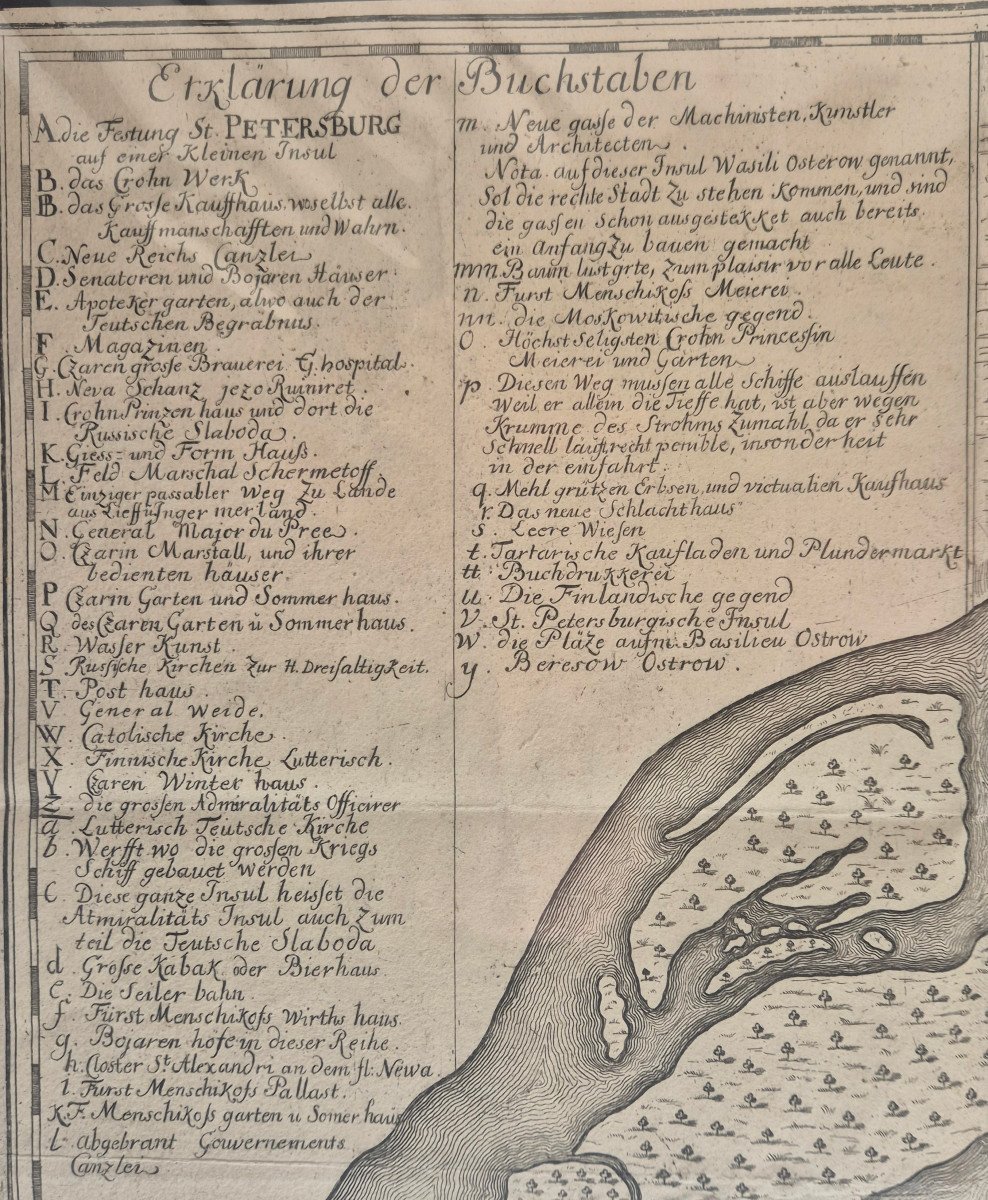 Erklärung der Buchstaben
A. die Festung St. PETERSBURG
auf einer Kleinen Insul
B. das Crohn Werk
B. das Grosse Kauffhaus, woselbst alle.
Kauffmanschafften und Wahrn.
C. Neue Reichs Canzlei
D. Senatoren und Bojaren Häuser
E. Apoteker garten, alwo auch der
Teutschen Begräbnus.
F. Magazinen
G. Czaren grosse Brauerei G. hospital.
H. Neva Schanz jezo Ruiniret.
I. Crohn Prinzen haus und dort die
Russische Slaboda.
K. Giess= und Form Hauß.
L. Feld Marschal Schermetoff.
M Einziger passabler Weg zu Lande
aus Lieff u Inger merland.
N. General Major du Pree
O. Czarin Marstall, und ihrer
bedienten häuser.
P Czarin Garten und Sommer haus.
Q des Czaren Garten ü Sommer haus.
R. Wasser Kunst
S. Russische Kirchen zur H. Dreifaltigkeit.
T. Post haus.
V General Weide.
W. Catolische Kirche
X. Finnische Kirche Lutterisch.
Y Czaren Winter haus.
Z. die grossen Admiralitäts Officirer
a. Lutterisch Teutsche Kirche
b. Werfft wo die grossen Kriegs
Schiff gebauet werden
C Diese ganze Insul heisset die
Atmiralitäts Insul auch zum
teil die Teutsche Slaboda
d Grosse Kabak oder Bierhaus
e. Die Seiler bahn
f. Fürst Menschikofs Wirths haus.
g. Bojaren höfe in dieser Reihe.
h. Closter St. Alexandri an dem fl: Newa.
i. Furst Menschikofs Pallast.
k. F. Menschikofs garten u Somer haus
l. abgebrant Gouvernements
Canzlei
m. Neue gasse der Machinisten, Kunstler
und Architecten.
Nota. auf dieser Insul Wasili Osterow genannt,
Sol die rechte Stadt zu stehen kommen, und sind
die gassen schon ausgestekket auch bereits
ein Anfang zu bauen gemacht
mm. Baum lustgrte, zum plaisir vor alle Leute.
n. Furst Menschikofs Meierei.
nn. die Moskowitische gegend.
O. Höchst seligsten Crohn Princessin
Meierei und Garten
p. Diesen Weg mussen alle schiffe auslauffen
Weil er allein die Tieffe hat, ist aber wegen
Krumme des Strohms zumahl da er sehr
schnell läuft, recht penible, insonderheit
in der einfahrt.
q. Mehl grützen Erbsen, und victualien Kaufhaus
r. Das neue Schlachthaus
s. Leere Wiesen
t. Tartarische Kaufladen und Plundermarkt
tt. Buchdrukkerei
u. Die Finlandische gegend
V. St. Petersburgische Insul
W. die Pläze aufm. Basilieu Ostrow
y. Beresow Ostrow.